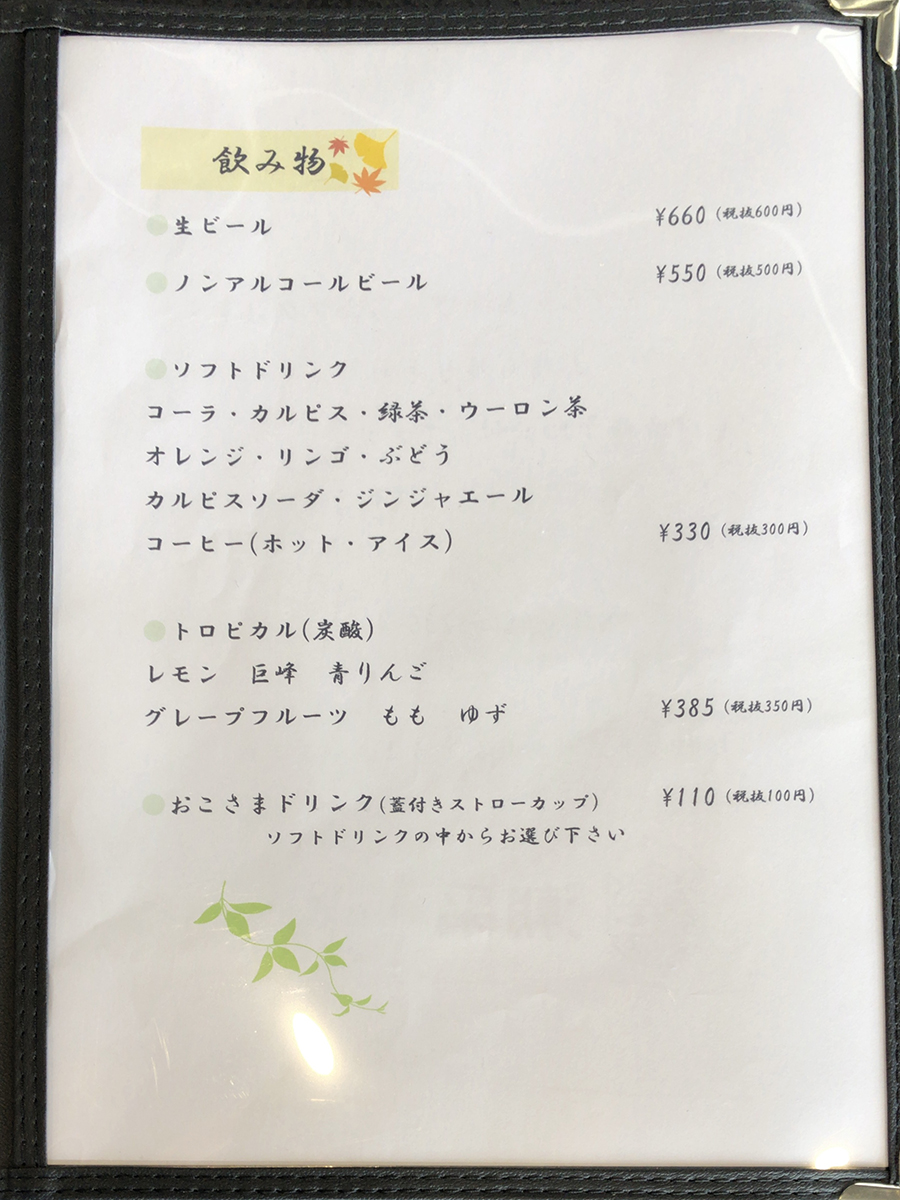 飲み物
生ビール ¥660（税抜600円）
ノンアルコールビール ¥550（税抜500円）
ソフトドリンク
コーラ・カルピス・緑茶・ウーロン茶
オレンジ・リンゴ・ぶどう
カルピスソーダ・ジンジャエール
コーヒー(ホット・アイス) ¥330（税抜300円）
トロピカル(炭酸)
レモン　巨峰　青りんご
グレープフルーツ　もも　ゆず ¥385（税抜350円）
おこさまドリンク(蓋付きストローカップ) ¥110（税抜100円）
ソフトドリンクの中からお選び下さい